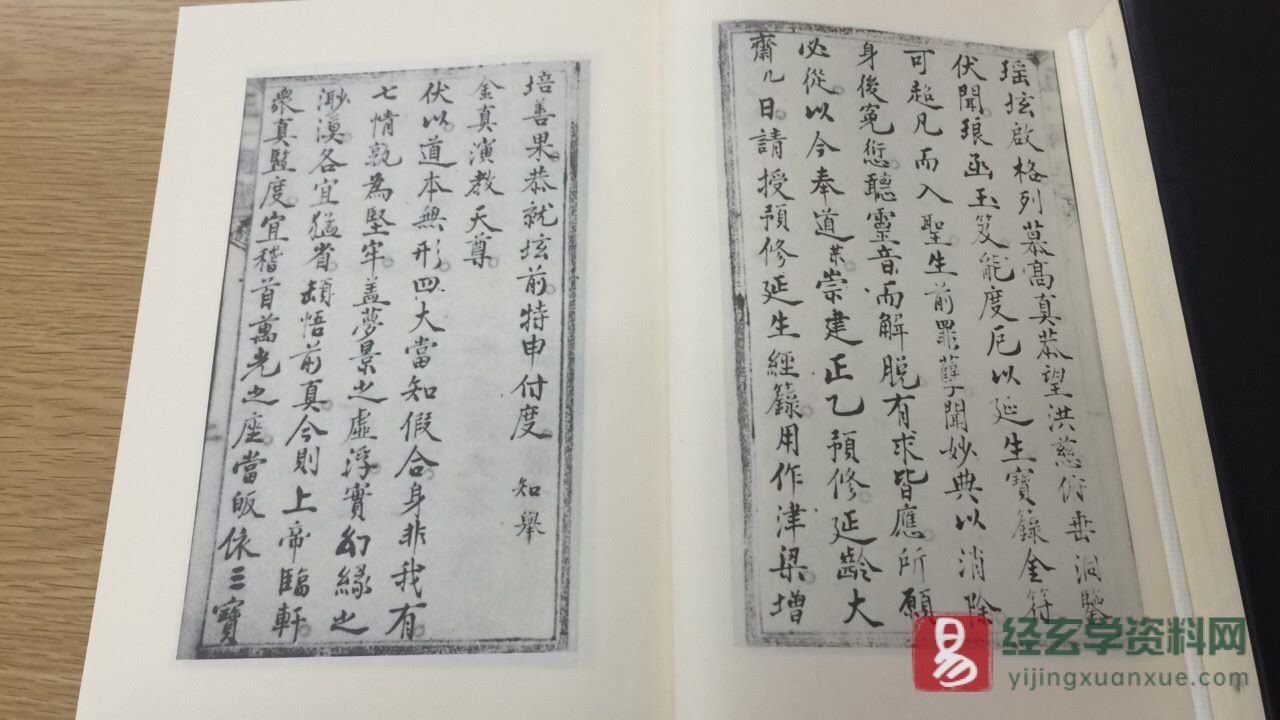 瑶坛啟格列慕高真恭望洪慈俯垂洞鑒
伏聞琅函玉笈能度厄以延生寶籙金符
可超凡而入聖生前罪孽聞妙典以消除
身後冤愆聽靈音而解脱有求皆應所願
必從以今奉道某崇建正乙預修延齡大
齋几日請授預修延生經籙用作津梁增
培善果恭就坛前特申付度 知舉
金真演教天尊
伏以道本無形四大當知假合身非我有
七情孰為堅牢盖夢景之虛浮實幻緣之
渺漠各宜猛省頓悟前真今則上帝臨軒
眾真監度宜稽首萬光之座當皈依三寶
易
经玄学资料网
yijingxuanxue.com